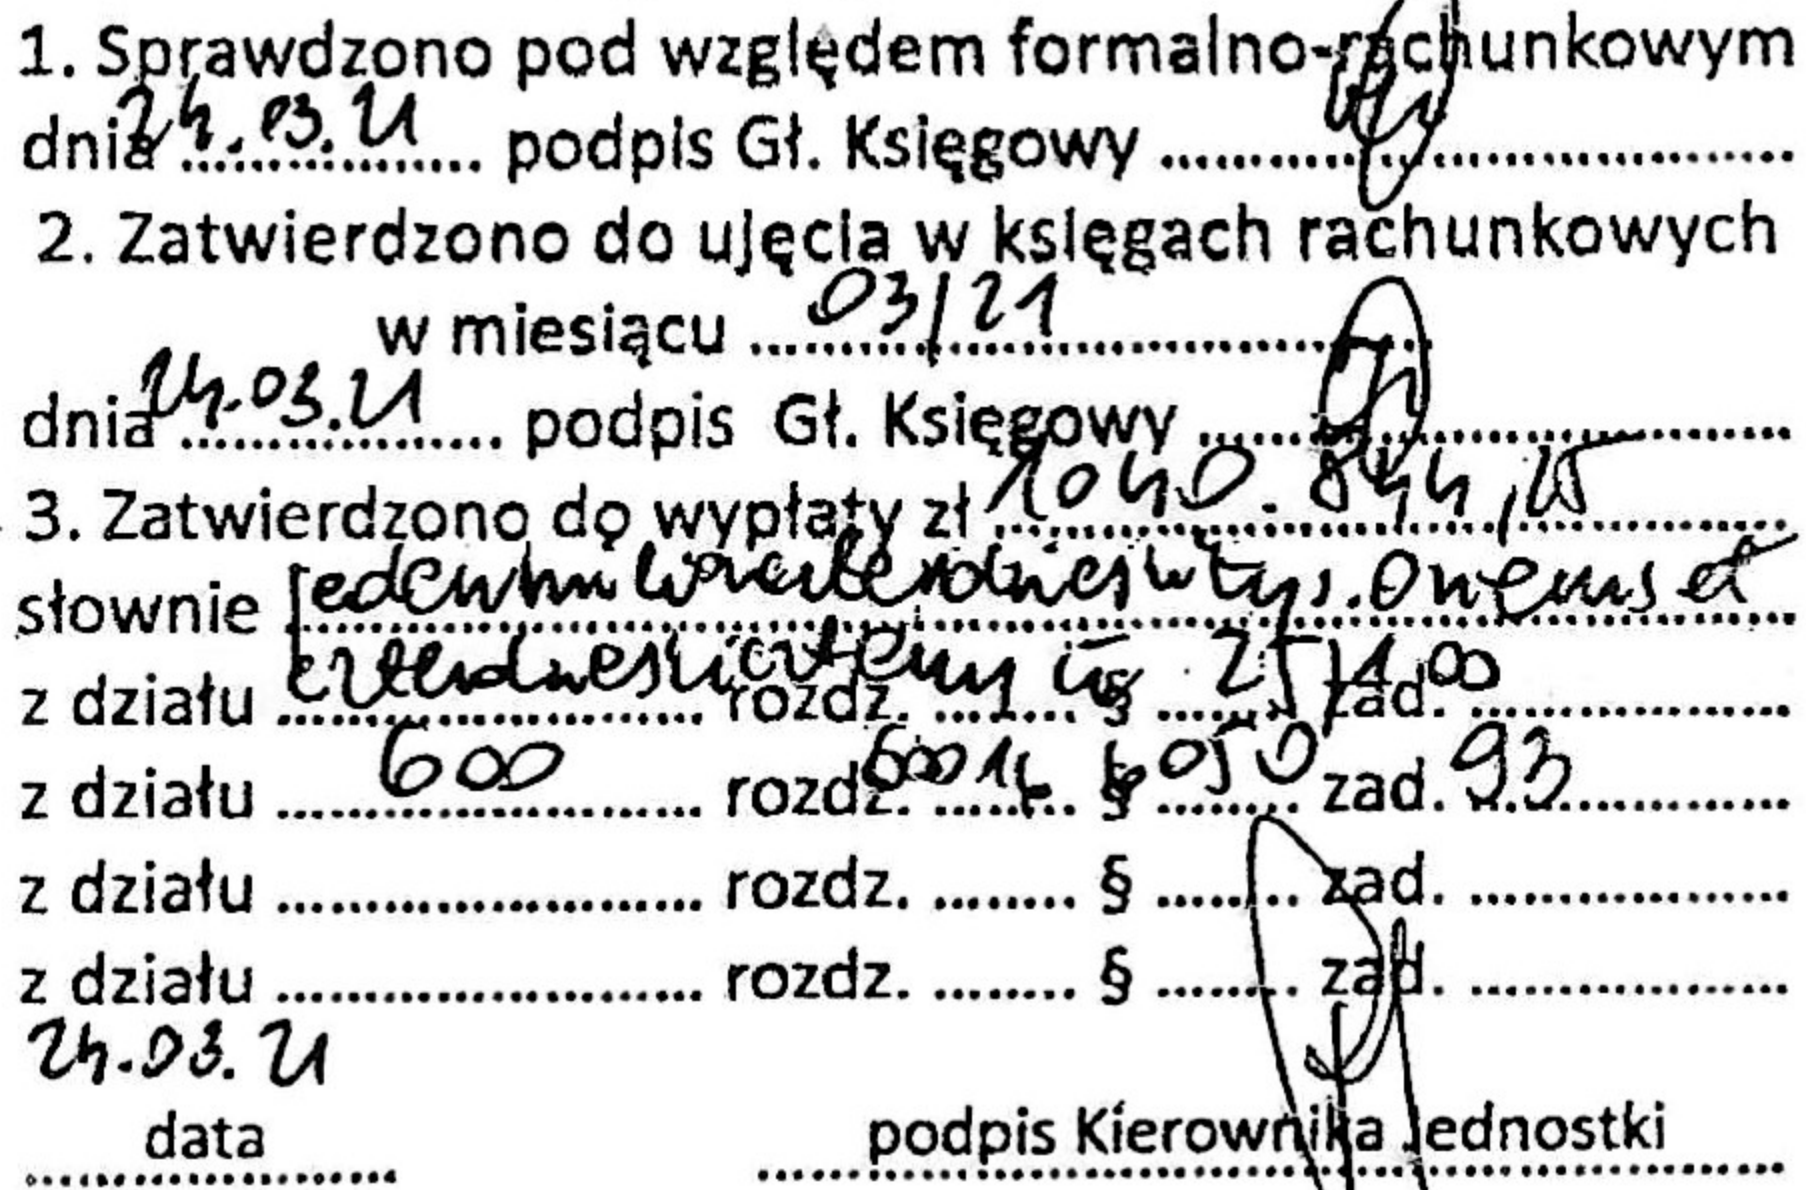 1. Sprawdzono pod względem formalno-rachunkowym
dnia 24.03.21 podpis Gł. Księgowy
2. Zatwierdzono do ujęcia w księgach rachunkowych
w miesiącu 03/21
dnia 24.03.21 podpis Gł. Księgowy
3. Zatwierdzono do wypłaty zł 1040.844,25
słownie jeden mln czterdzieści tys. osiemset
czterdzieści cztery 25/100
z działu rozdz. § zad.
z działu 600 rozdz. 60016 § 6050 zad. 93
z działu rozdz. § zad.
z działu rozdz. § zad.
24.03.21
data podpis Kierownika Jednostki